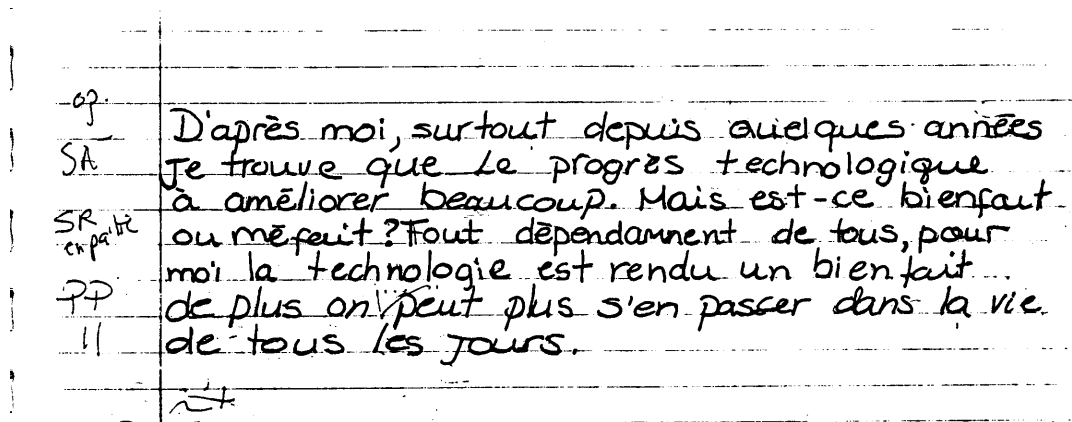 op.
SA
SR
en partie
PP
11
D'après moi, surtout depuis quielques années
je trouve que le progrès technologique
à améliorer beaucoup. Mais est-ce bienfait
ou méfait? Tout dépendamnent de tous, pour
moi la technologie est rendu un bienfait
de plus on peut plus s'en passer dans la vie
de tous les jours.